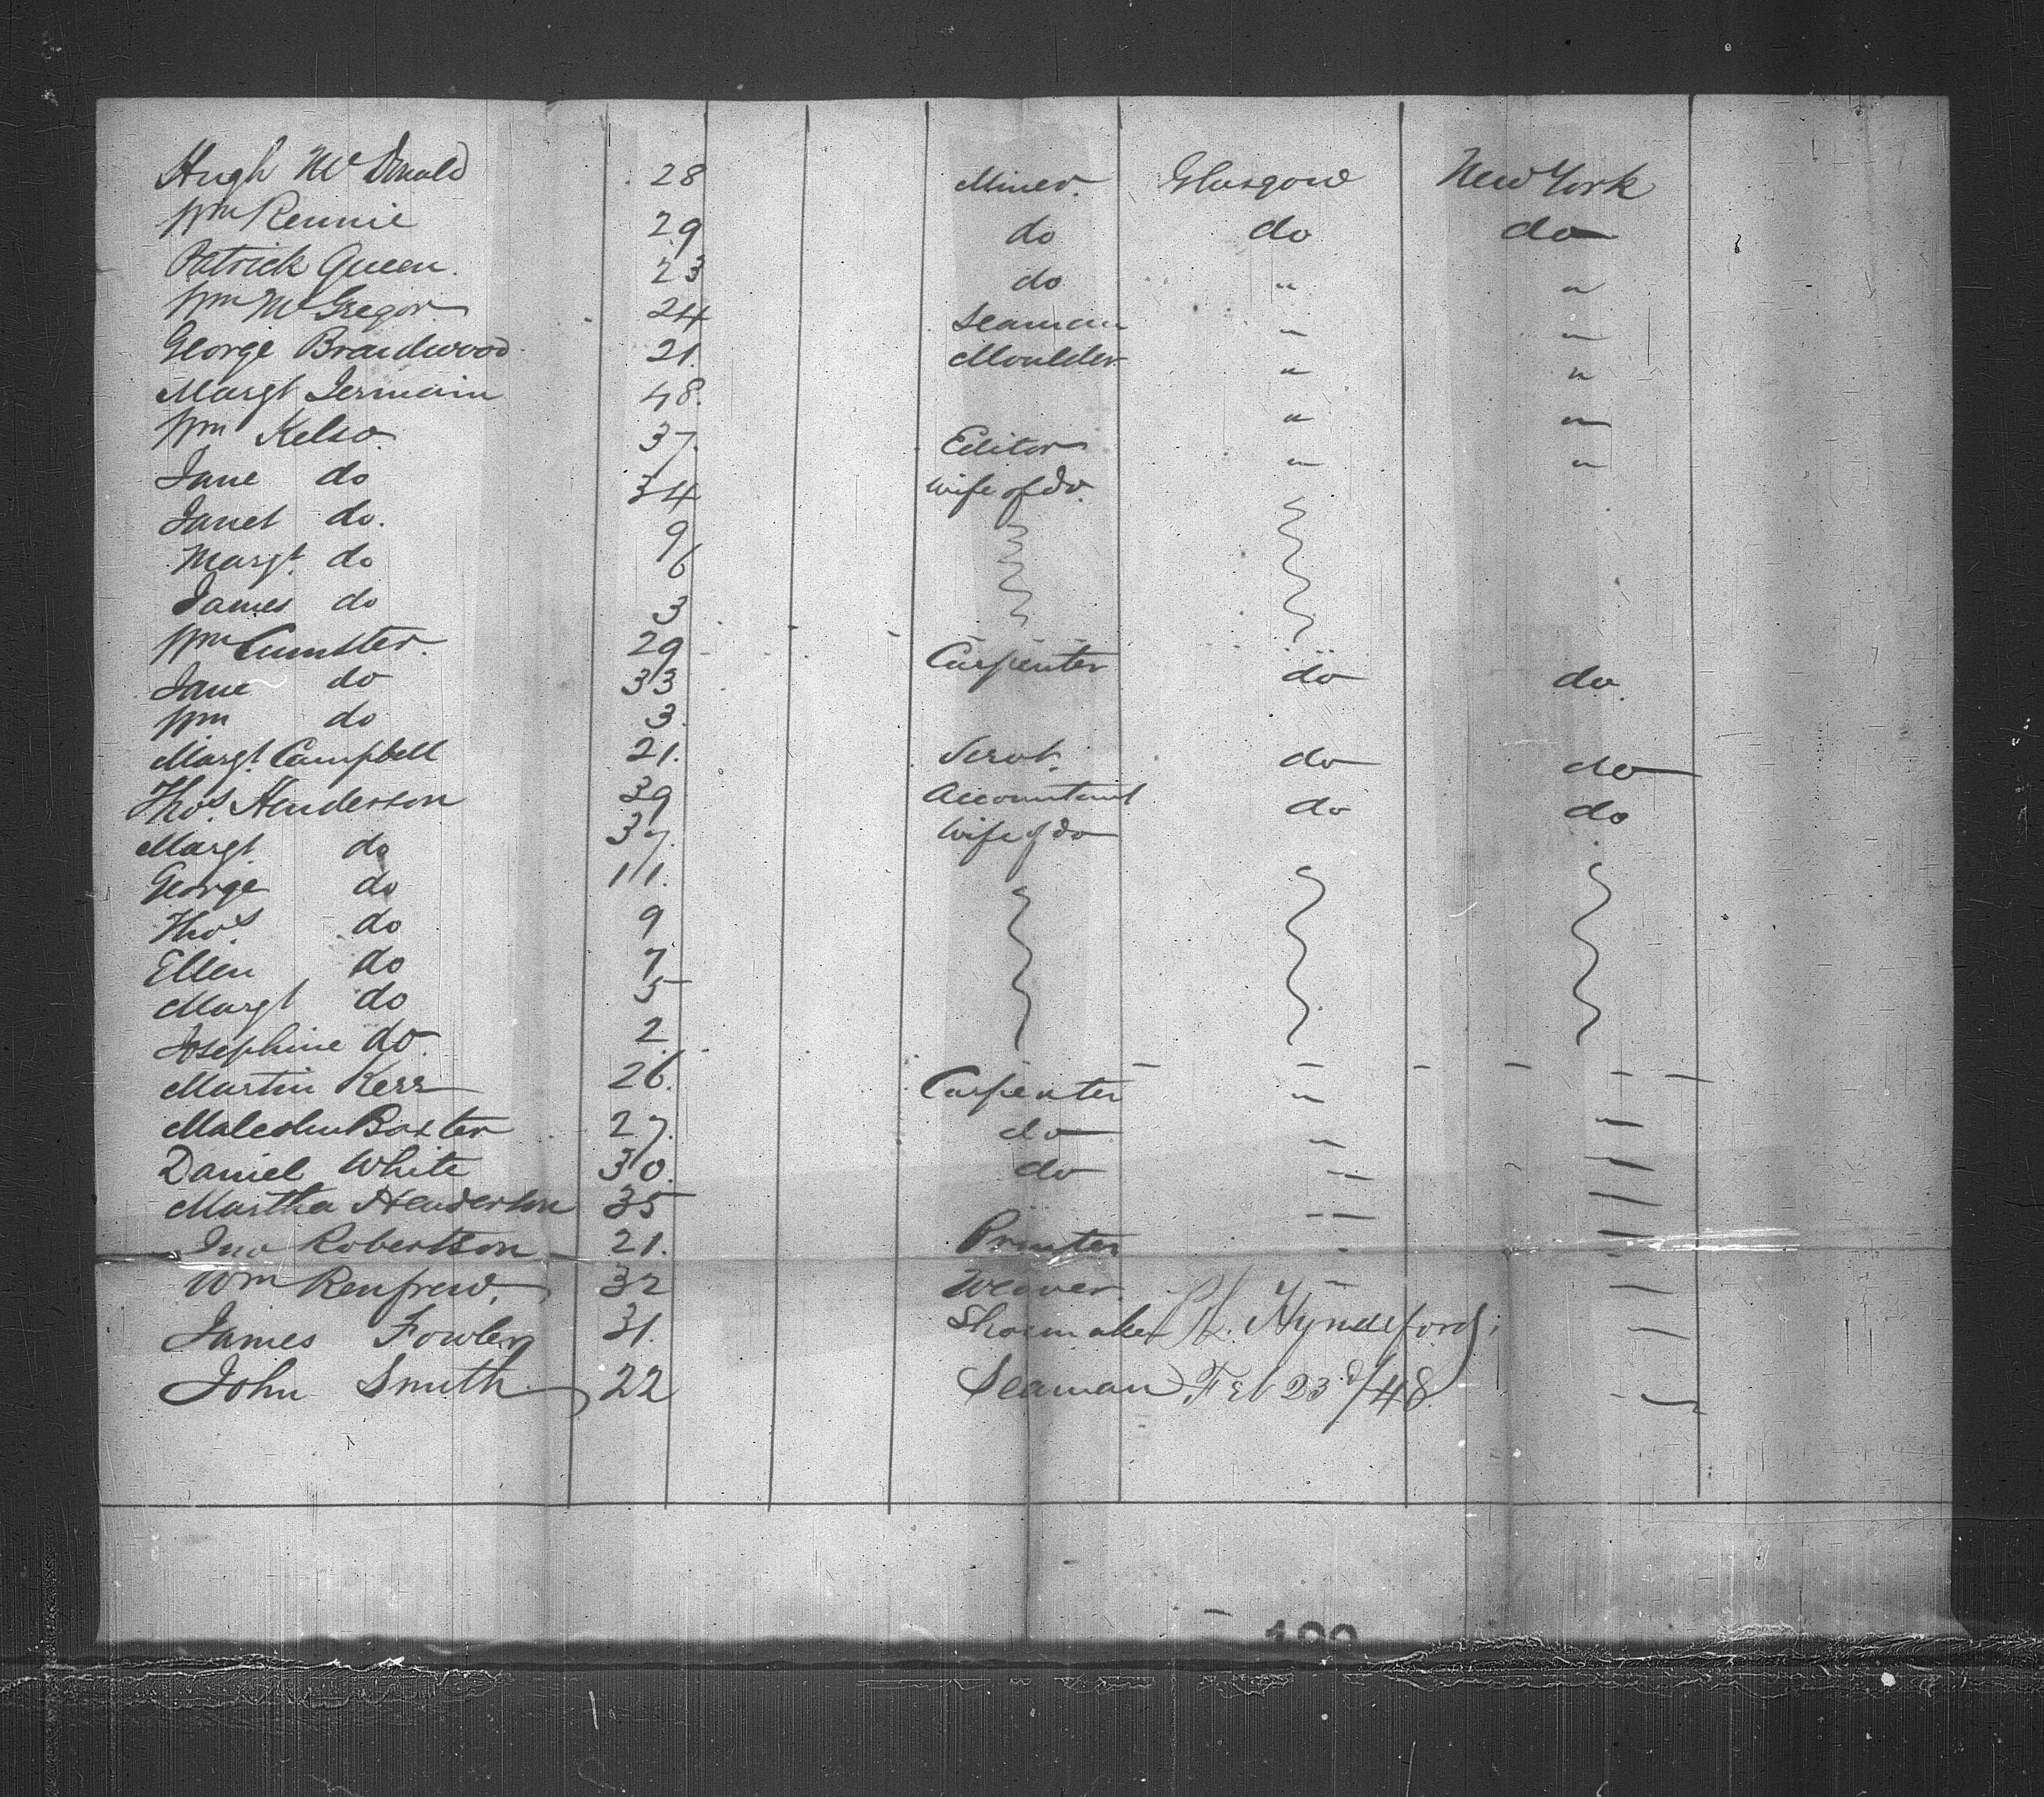 Hugh McDonald 28 Miner. Glasgow New York
Wm Rennie 29 do do do
Patrick Queen. 23 do " "
Wm McGregor 24 Seaman " "
George Braidwood 21. Moulder. " "
Margt Jermain 48. " "
Wm Kelso. 37. Editor " "
Jane do 34 Wife of do.
Janet do. 9
Margt. do 6
James do 3
Wm 29 Carpenter do do.
Jane do 33
Wm do 3.
Margt. Campbell 21. Servt. do do
Thos. Henderson 39 Accountant do do
Margt. do 37. Wife of do
George do 11.
Thos. do 9
Ellen do 7
Margt do 5
Josephine do. 2
Martin Kerr 26. Carpenter "
Malcolm Baxter 27. do " "
Daniel White 30. do " "
Martha Henderson 35 " "
Jno Robertson 21. Printer "
Wm Renfrew. 32 Weaver. " "
James Fowler 31. Shoemaker H. Hyndeford; "
John Smith 22 Seaman Feb 23d/48. "